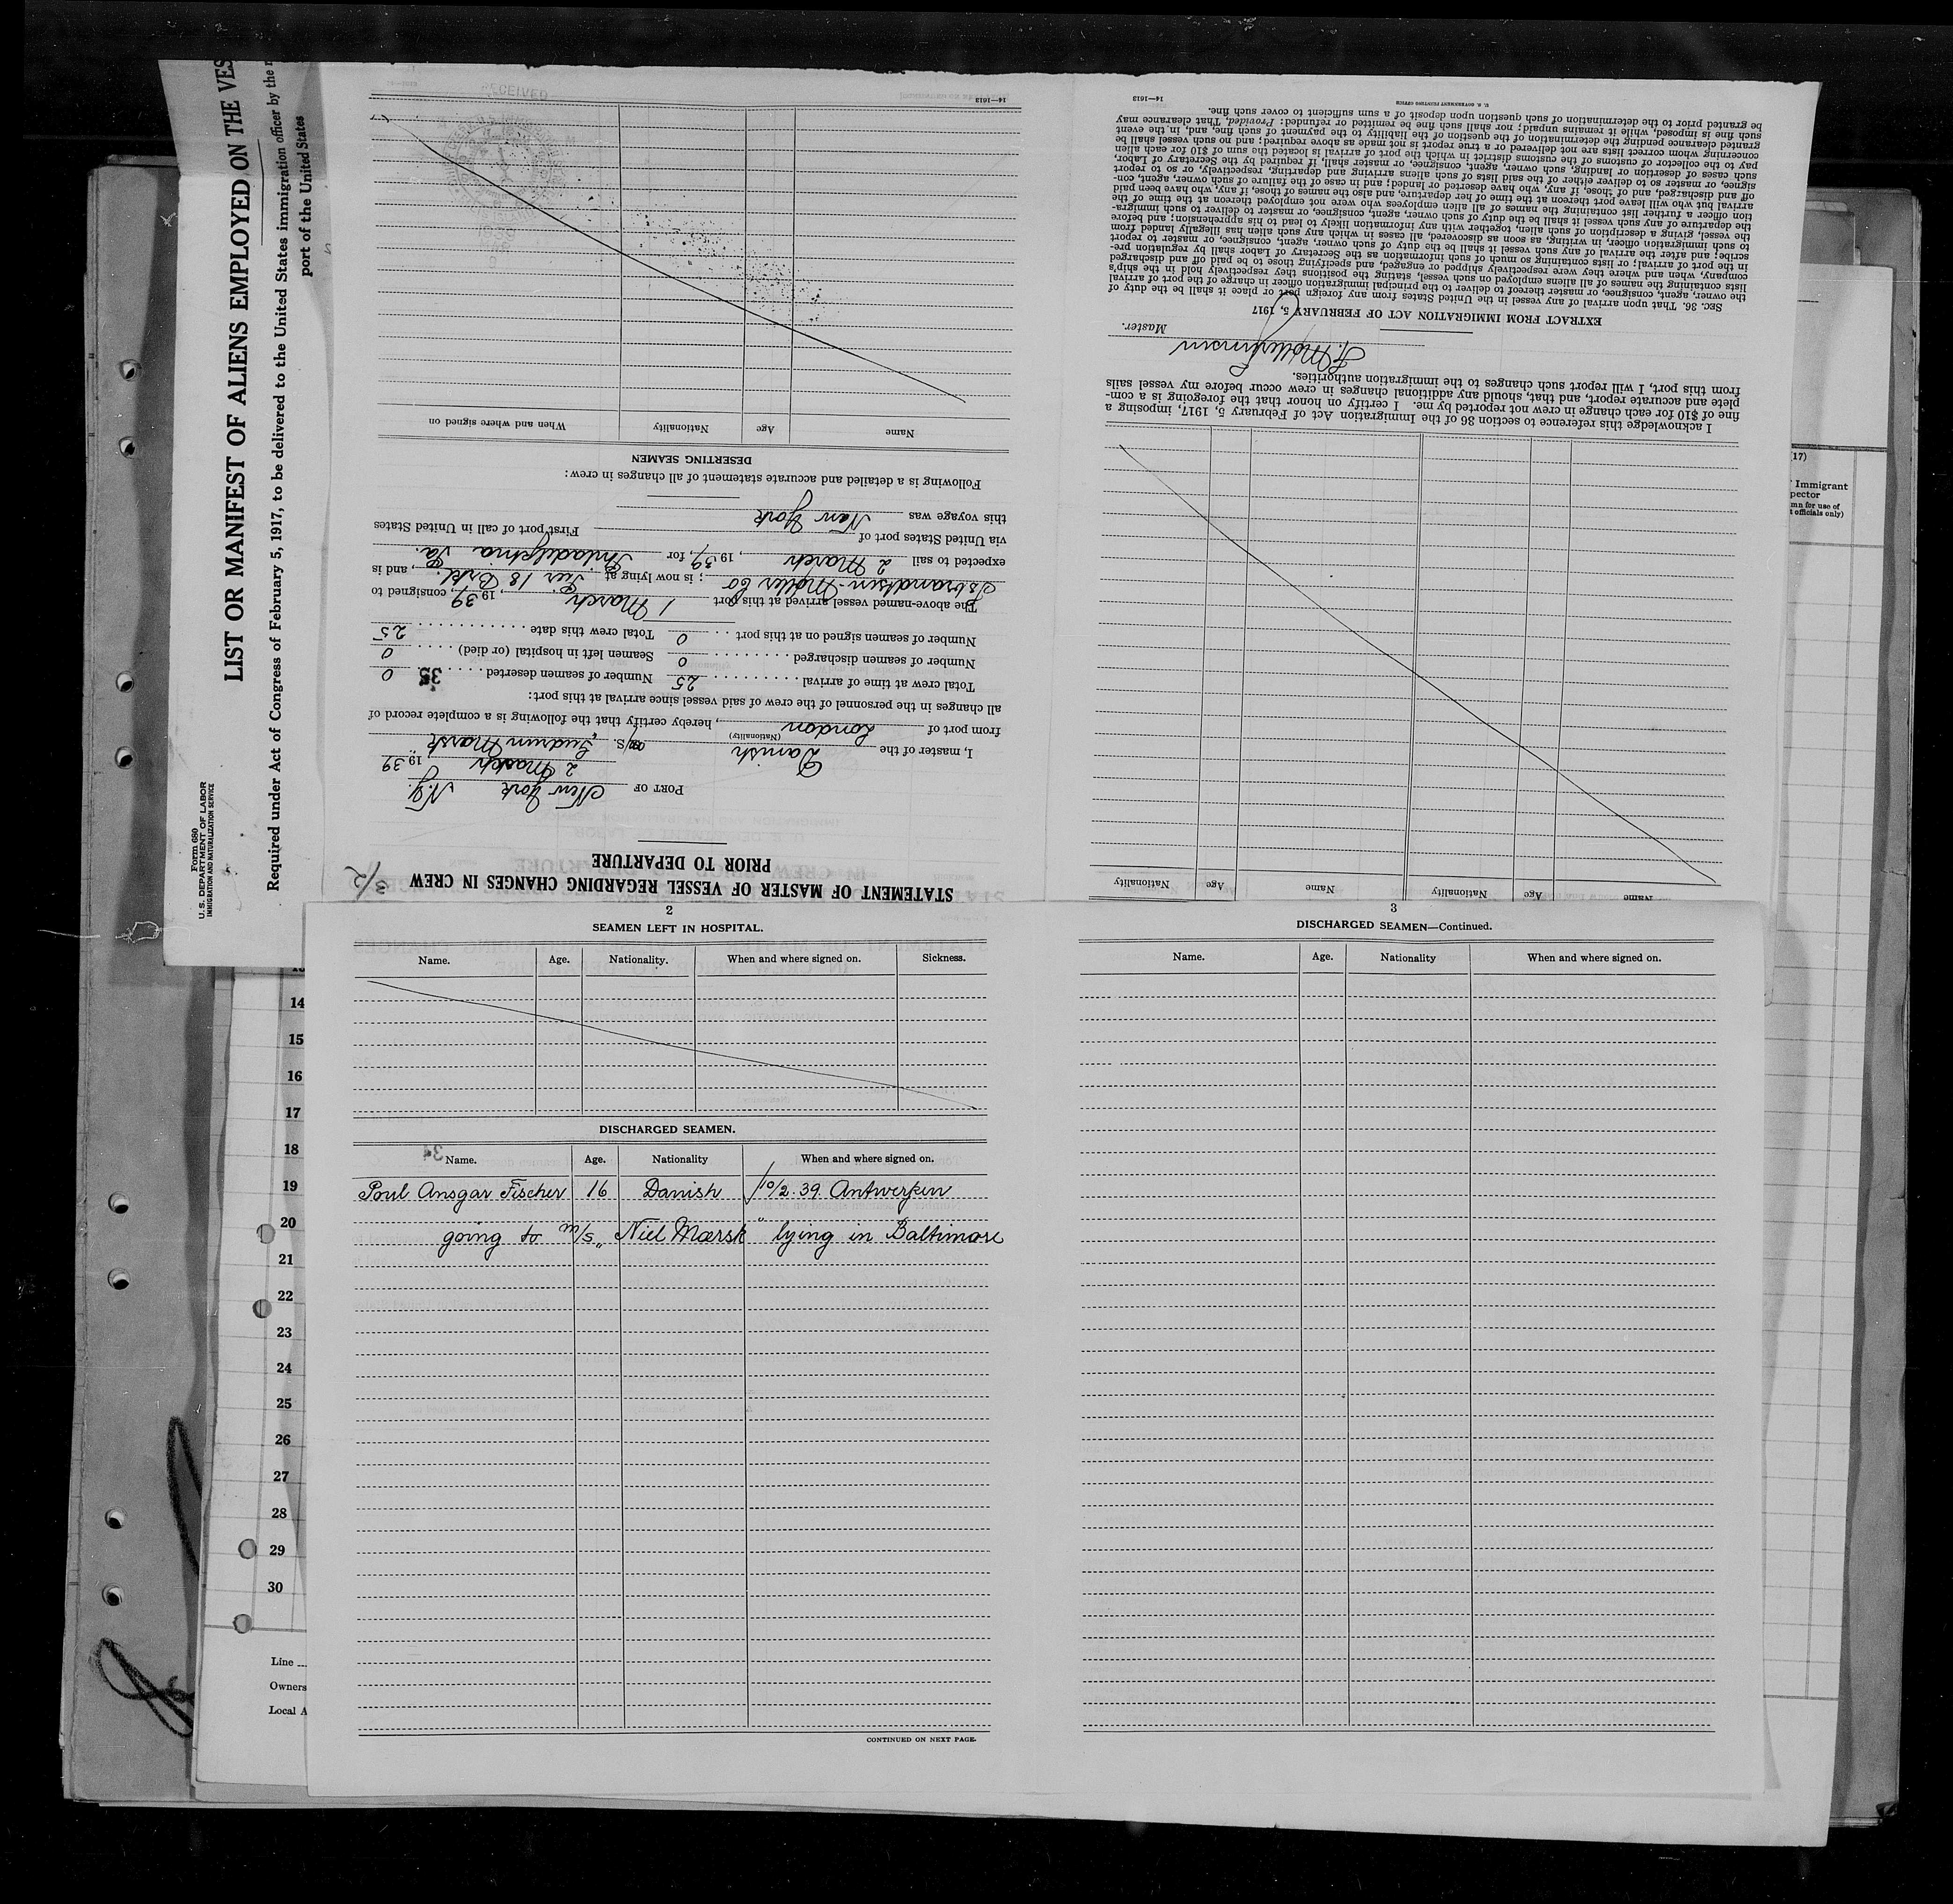 Form 680
U. S. DEPARTMENT OF LABOR
IMMIGRATION AND NATURALIZATION SERVICE
LIST OR MANIFEST OF ALIENS EMPLOYED ON THE VES
Required under Act of Congress of February 5, 1917, to be delivered to the United States immigration officer by the
port of the United States
3/2
STATEMENT OF MASTER OF VESSEL REGARDING CHANGES IN CREW
PRIOR TO DEPARTURE
PORT OF New York N.Y.
2 March, 1939
I, master of the Danish m/S. "Gudrun Mærsk"
(Nationality)
from port of London, hereby certify that the following is a complete record of
all changes in the personnel of the crew of said vessel since arrival at this port:
Total crew at time of arrival 25 Number of seamen deserted 0
35
Number of seamen discharged 0 Seamen left in hospital (or died) 0
Number of seamen signed on at this port 0 Total crew this date 25
The above-named vessel arrived at this port 1 March, 1939, consigned to
Isbrandtsen-Moller Co; is now lying at Pier 18 Brkl., and is
expected to sail 2 March, 1939, for Philadelphia Pa.
via United States port of First port of call in United States
this voyage was New York
Following is a detailed and accurate statement of all changes in crew:
DESERTING SEAMEN
Name Age Nationality When and where signed on
14—1613
RECEIVED
Name Age Nationality Name Age Nationality
I acknowledge this reference to section 36 of the Immigration Act of February 5, 1917, imposing a
fine of $10 for each change in crew not reported by me. I certify on honor that the foregoing is a com-
plete and accurate report, and that, should any additional changes in crew occur before my vessel sails
from this port, I will report such changes to the immigration authorities.
Master.
EXTRACT FROM IMMIGRATION ACT OF FEBRUARY 5, 1917
SEC. 36. That upon arrival of any vessel in the United States from any foreign port or place it shall be the duty of
the owner, agent, consignee, or master thereof to deliver to the principal immigration officer in charge of the port of arrival
lists containing the names of all aliens employed on such vessel, stating the positions they respectively hold in the ship's
company, when and where they were respectively shipped or engaged, and specifying those to be paid off and discharged
in the port of arrival; or lists containing so much of such information as the Secretary of Labor shall by regulation pre-
scribe; and after the arrival of any such vessel it shall be the duty of such owner, agent, consignee, or master to report
to such immigration officer, in writing, as soon as discovered, all cases in which any such alien has illegally landed from
the vessel, giving a description of such alien, together with any information likely to lead to his apprehension; and before
the departure of any such vessel it shall be the duty of such owner, agent, consignee, or master to deliver to such immigra-
tion officer a further list containing the names of all alien employees who were not employed thereon at the time of the
arrival but who will leave port thereon at the time of her departure, and also the names of those, if any, who have been paid
off and discharged, and of those, if any, who have deserted or landed; and in case of the failure of such owner, agent, con-
signee, or master so to deliver either of the said lists of such aliens arriving and departing, respectively, or so to report
such cases of desertion or landing, such owner, agent, consignee, or master shall, if required by the Secretary of Labor,
pay to the collector of customs of the customs district in which the port of arrival is located the sum of $10 for each alien
concerning whom correct lists are not delivered or a true report is not made as above required; and no such vessel shall be
granted clearance pending the determination of the question of the liability to the payment of such fine, and, in the event
such fine is imposed, while it remains unpaid; nor shall such fine be remitted or refunded: Provided, That clearance may
be granted prior to the determination of such question upon deposit of a sum sufficient to cover such fine.
U. S. GOVERNMENT PRINTING OFFICE 14—1613
(17)
Immigrant
pector
mn for use of
t officials only)
2
SEAMEN LEFT IN HOSPITAL.
Name. Age. Nationality. When and where signed on. Sickness.
DISCHARGED SEAMEN.
34
Name. Age. Nationality When and where signed on.
Poul Ansgar Fischer 16 Danish 10/2.39 Antwerpen
going to m/s „Niel Mærsk" lying in Baltimore
CONTINUED ON NEXT PAGE.
3
DISCHARGED SEAMEN—Continued.
Name. Age. Nationality When and where signed on.
14
15
16
17
18
19
20
21
22
23
24
25
26
27
28
29
30
Line
Owners
Local A